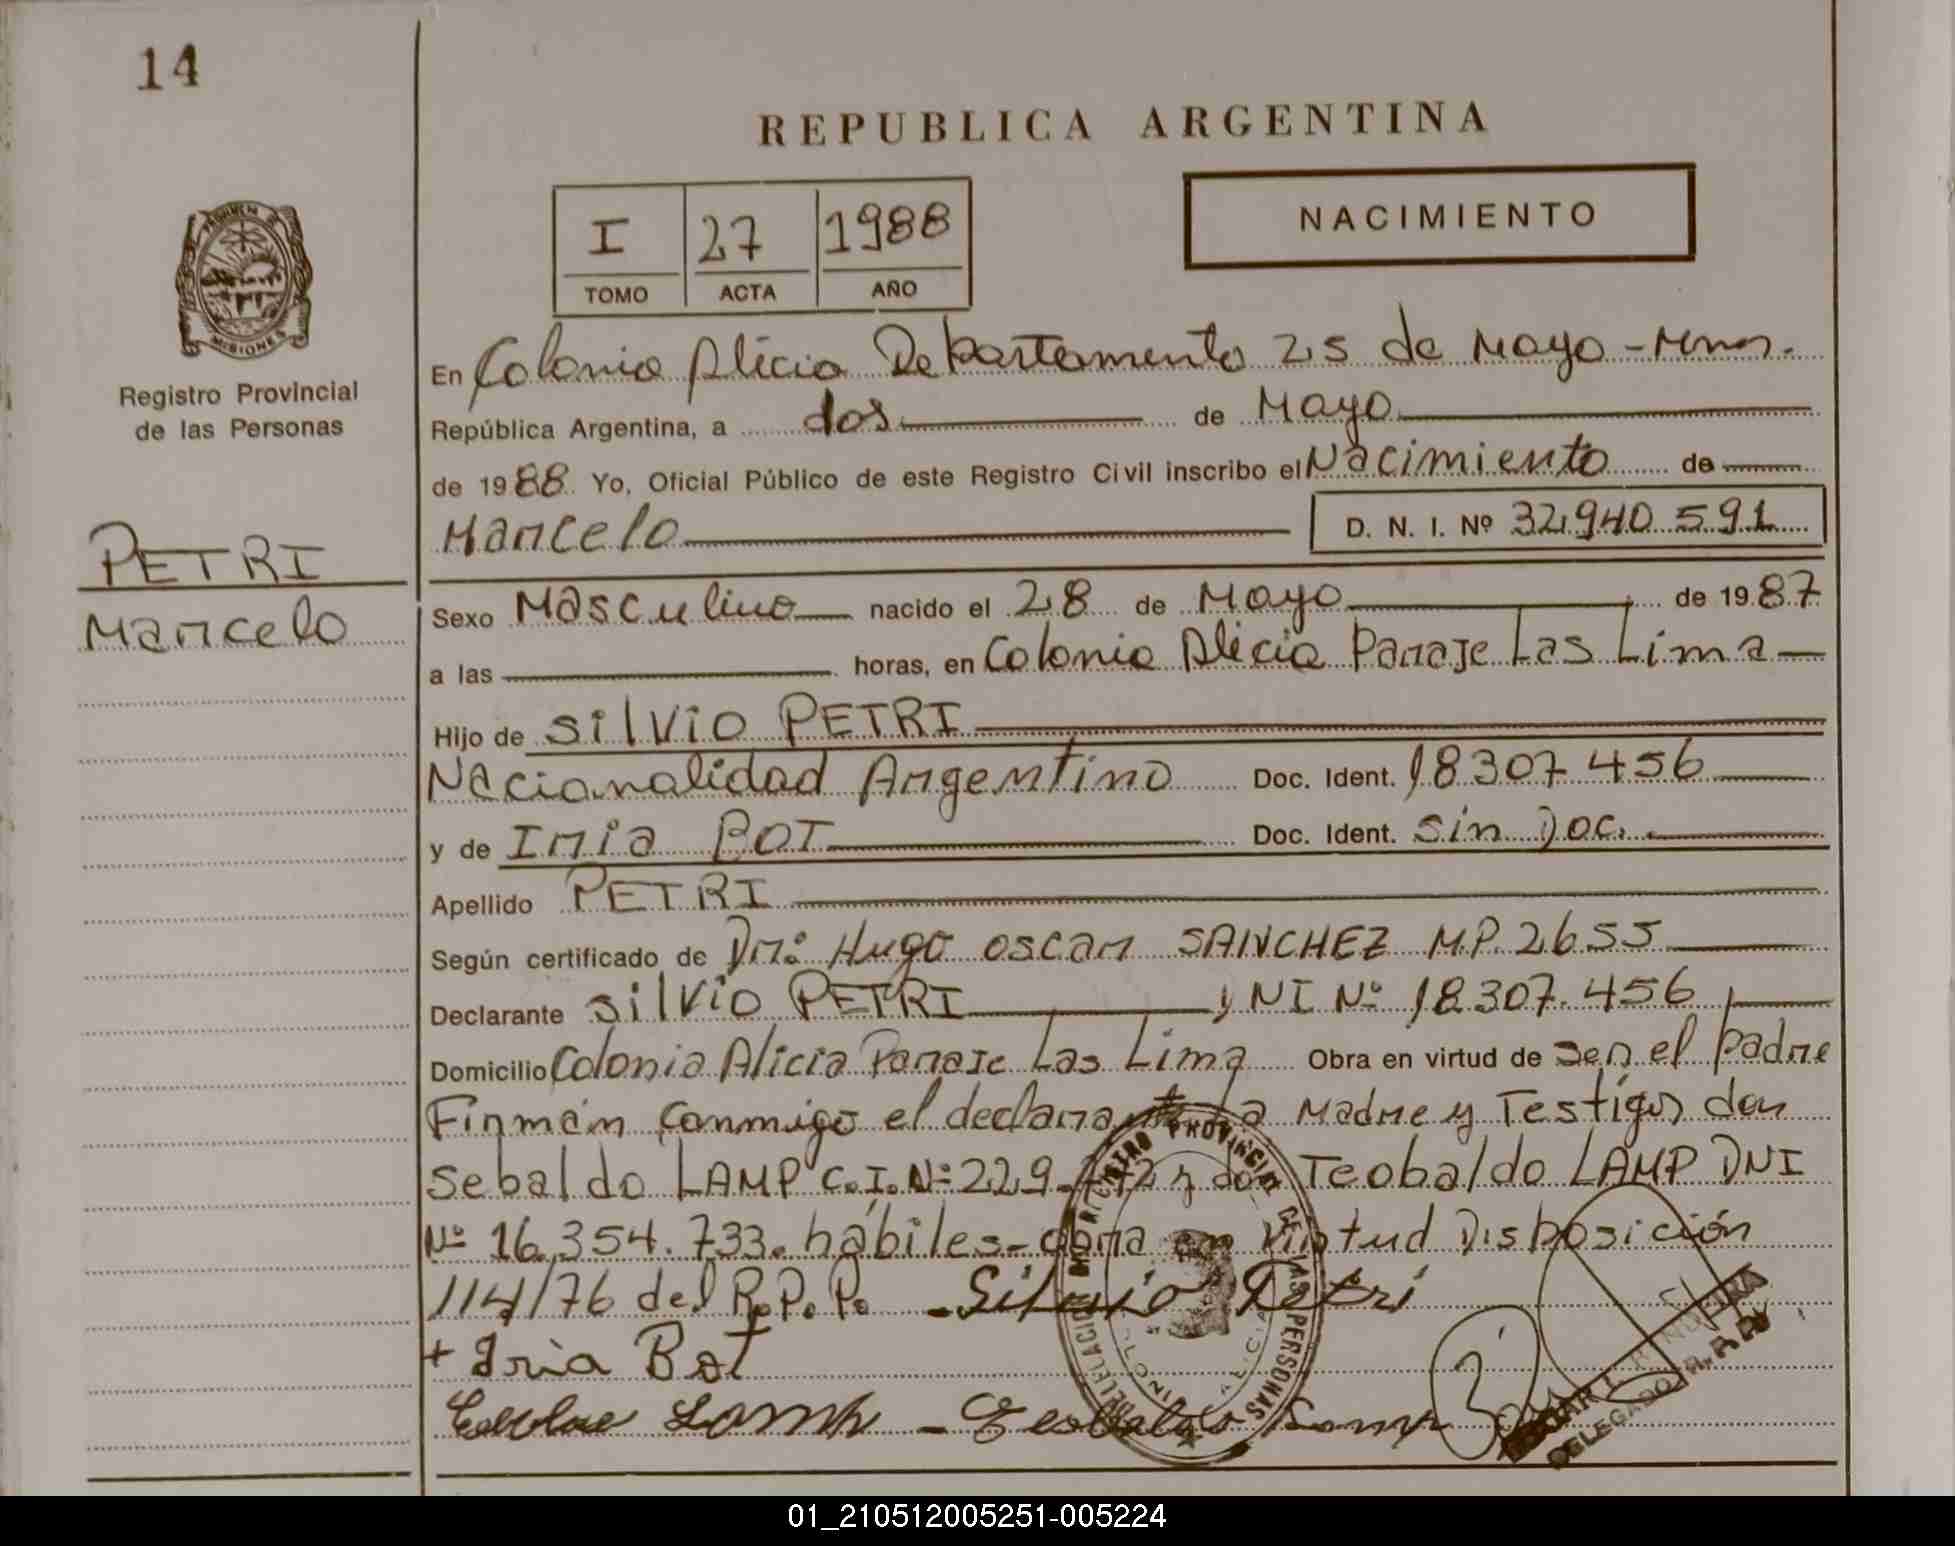 14
REPUBLICA ARGENTINA
I 27 1988
TOMO ACTA AÑO
NACIMIENTO
MISIONES
Registro Provincial
de las Personas
PETRI
Marcelo
En Colonia Alicia Departamento 25 de Mayo - Mnes.
República Argentina, a dos de Mayo
de 1988 Yo, Oficial Público de este Registro Civil inscribo el Nacimiento de
Marcelo D. N. I. Nº 32.940.591
Sexo Masculino nacido el 28 de Mayo de 1987
a las horas, en Colonia Alicia Paraje Las Lima
Hijo de Silvio PETRI
Nacionalidad Argentino Doc. Ident. 18307456
y de Iria BOT Doc. Ident. Sin Doc.
Apellido PETRI
Según certificado de Dr: Hugo oscar SANCHEZ M.P. 2655
Declarante Silvio PETRI DNI Nº 18.307.456
Domicilio Colonia Alicia Paraje Las Lima Obra en virtud de ser el padre
Firman conmigo el declarante la Madre y Testigos don
Sebaldo LAMP C.I. Nº 229. y don Teobaldo LAMP DNI
Nº 16.354.733. hábiles - obra en virtud Disposición
114/76 del R.P.P. - Silvio Petri
+ Iria Bot
Lamp - Teobaldo Lamp
REGISTRO PROVINCIAL DE LAS PERSONAS
COLONIA ALICIA
DELEGADO
01_210512005251-005224